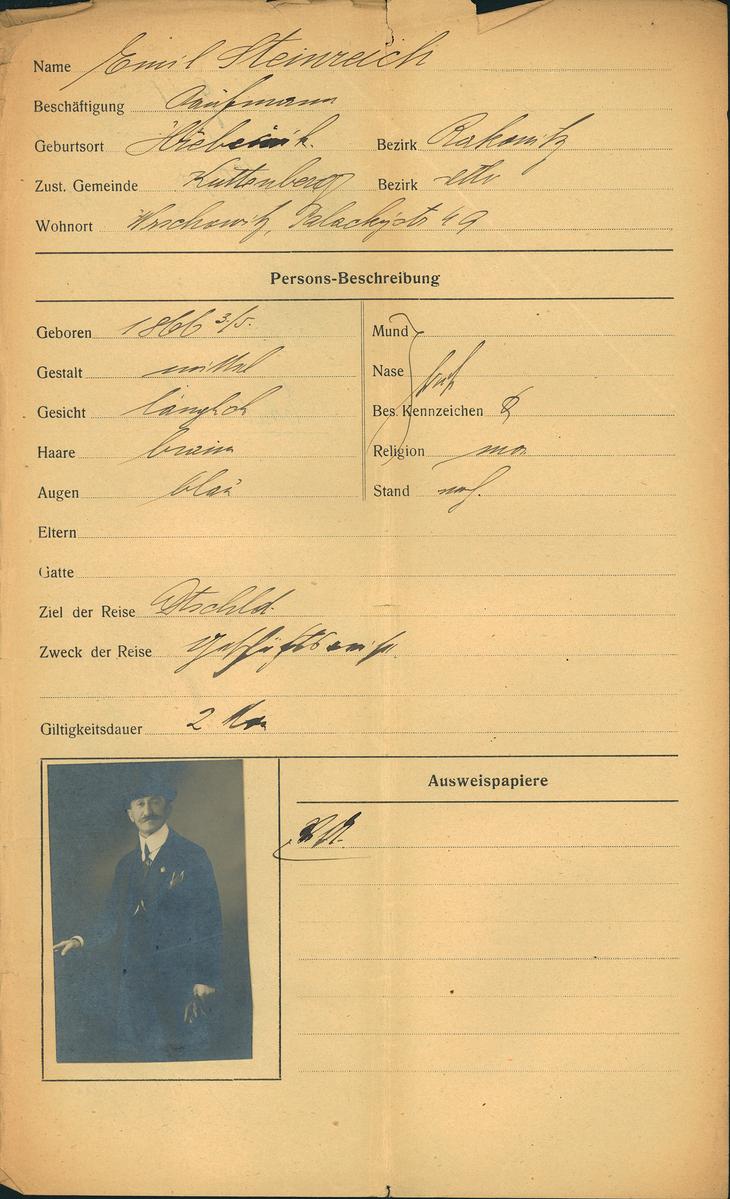 Name Emil Steinreich
Beschäftigung Kaufmann
Geburtsort Hřebečnik. Bezirk Rakonitz
Zust. Gemeinde Kuttenberg Bezirk dtto
Wohnort Wrschowitz, Palackýstr 49
Persons-Beschreibung
Geboren 1866 3/5. Mund
Gestalt mittel Nase
Gesicht länglich Bes. Kennzeichen
Haare braun Religion mos
Augen blau Stand
Eltern
Gatte
Ziel der Reise Dtschld.
Zweck der Reise Geschäftsreise
Giltigkeitsdauer 2 Mon
Ausweispapiere